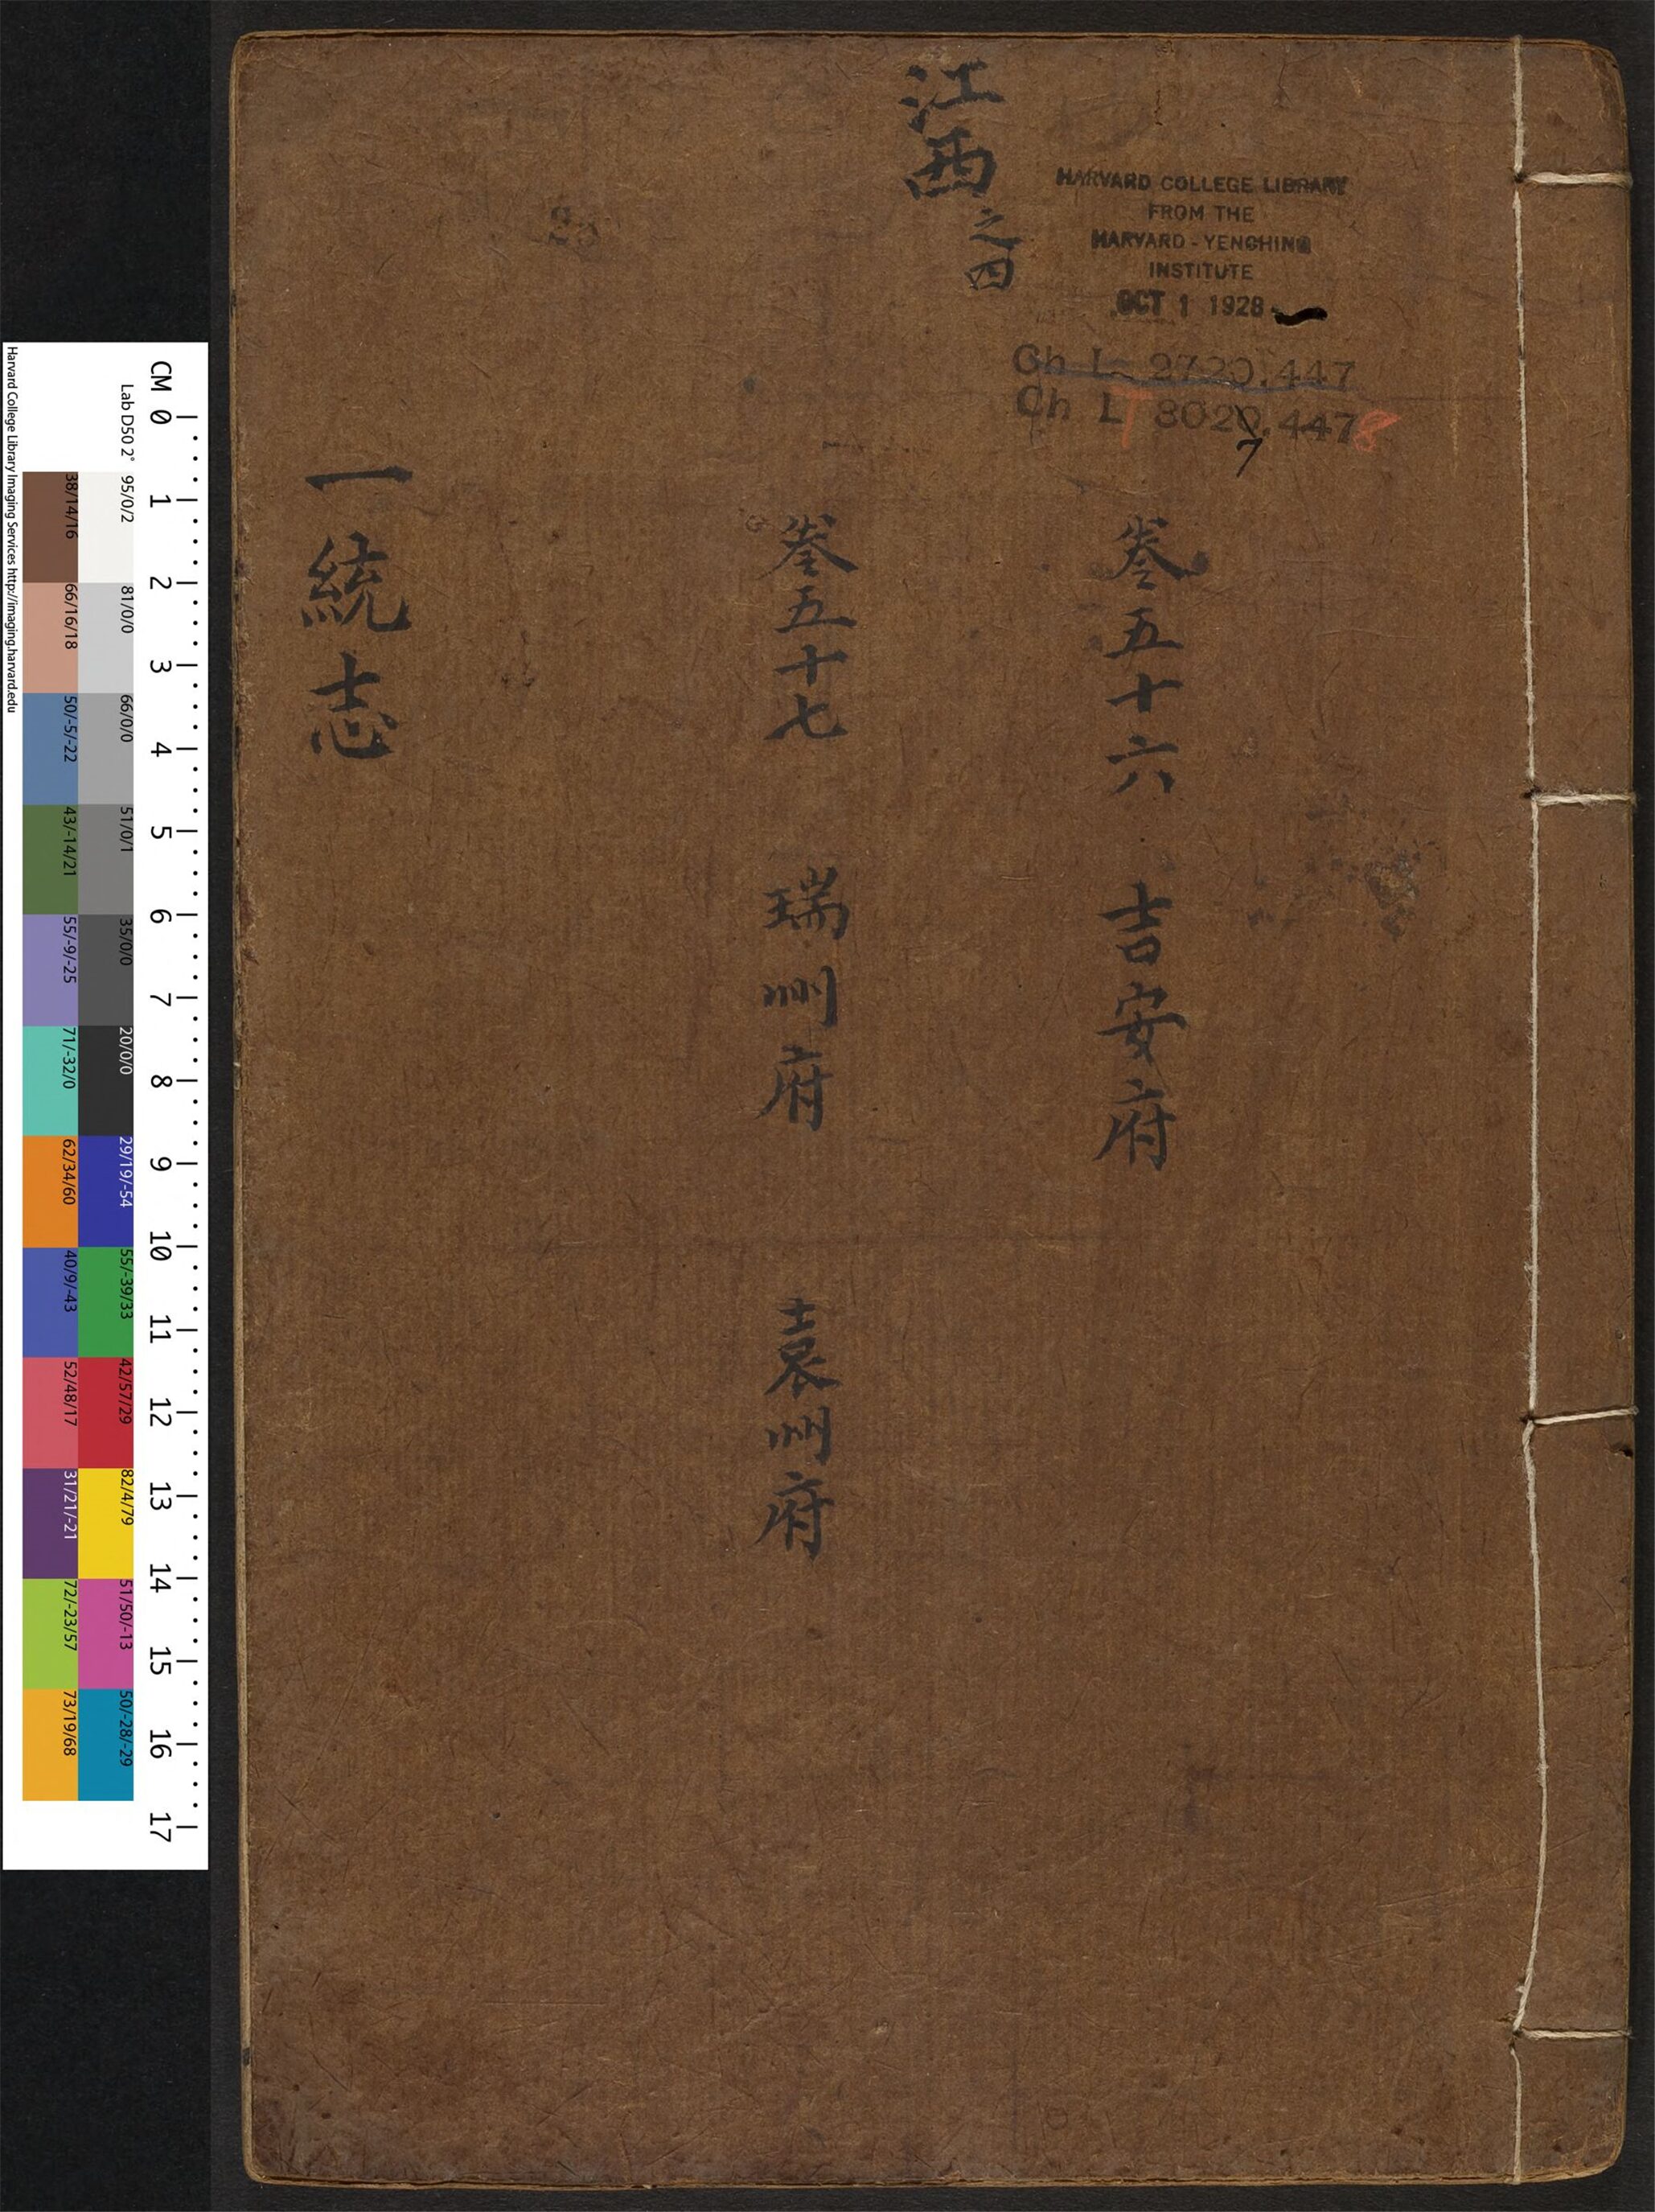 江西之四
HARVARD COLLEGE LIBRARY
FROM THE
HARVARD-YENCHING
INSTITUTE
OCT 1 1928
Ch L 2720.447
Ch LT 8020.4478
7
卷五十六 吉安府
卷五十七 瑞州府 袁州府
一統志
CM 0 1 2 3 4 5 6 7 8 9 10 11 12 13 14 15 16 17
Lab D50 2° 95/0/2 81/0/0 66/0/0 51/0/1 35/0/0 20/0/0 29/19/-54 55/-39/33 42/57/29 82/4/79 51/50/-13 50/-28/-29
38/14/16 66/16/18 50/-5/-22 43/-14/21 55/-9/-25 71/-32/0 62/34/60 40/9/-43 52/48/17 31/21/-21 72/-23/57 73/19/68
Harvard College Library Imaging Services http://imaging.harvard.edu